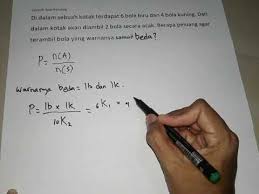 Di dalam sebuah kotak terdapat 6 bola biru dan 4 bola kuning. Dari
dalam kotak akan diambil 2 bola secara acak. Berapa peluang agar
terambil bola yang warnanya sama? beda?
P = n(A)
n(S)
Warnanya beda = 1b dan 1k :
P = 1b x 1k = 6K1 x 4
10K2